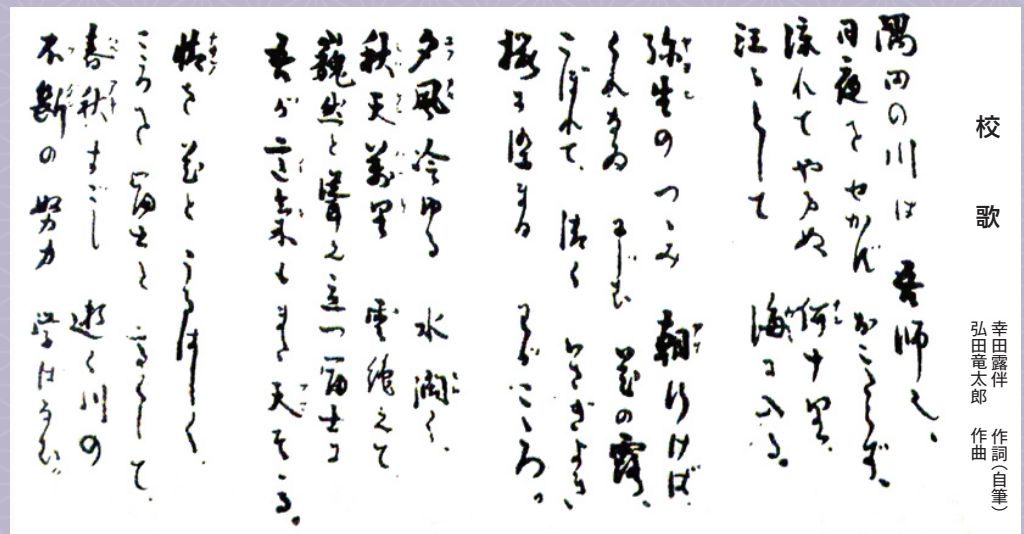 校歌
幸田露伴 作詞(自筆)
弘田竜太郎 作曲
隅田の川は 吾師也、
日夜を せかず おこたらず、
流れてやまぬ 何十里
汪々として 海に入る。
弥生のつつみ 朝行けば
くれなゐ にじむ 花の露、
こぼれて、清く いさぎよき、
桜に染まる わがこころ。
夕風冷ゆる 水濶く、
秋天萬里 雲絶えて
巍然と聳え立つ富士に
吾が もまた天そそる。
情を花とうるはしく、
こころを富士と高くして、
春秋すごし 逝く川の
不断の努力 学ばなむ